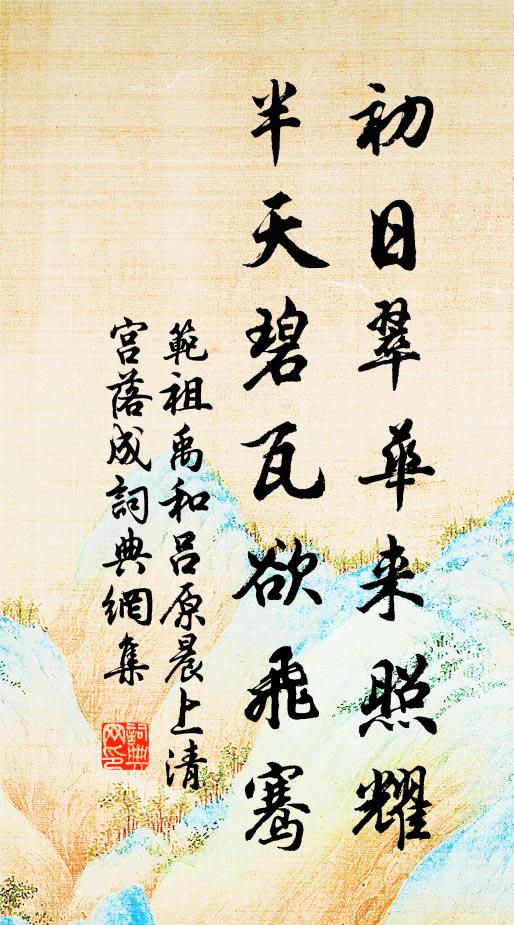 初日翠華来照耀
半天碧瓦欲飛騫
範祖禹和呂原晨上清
宫落成詞典網集
詞典
网印